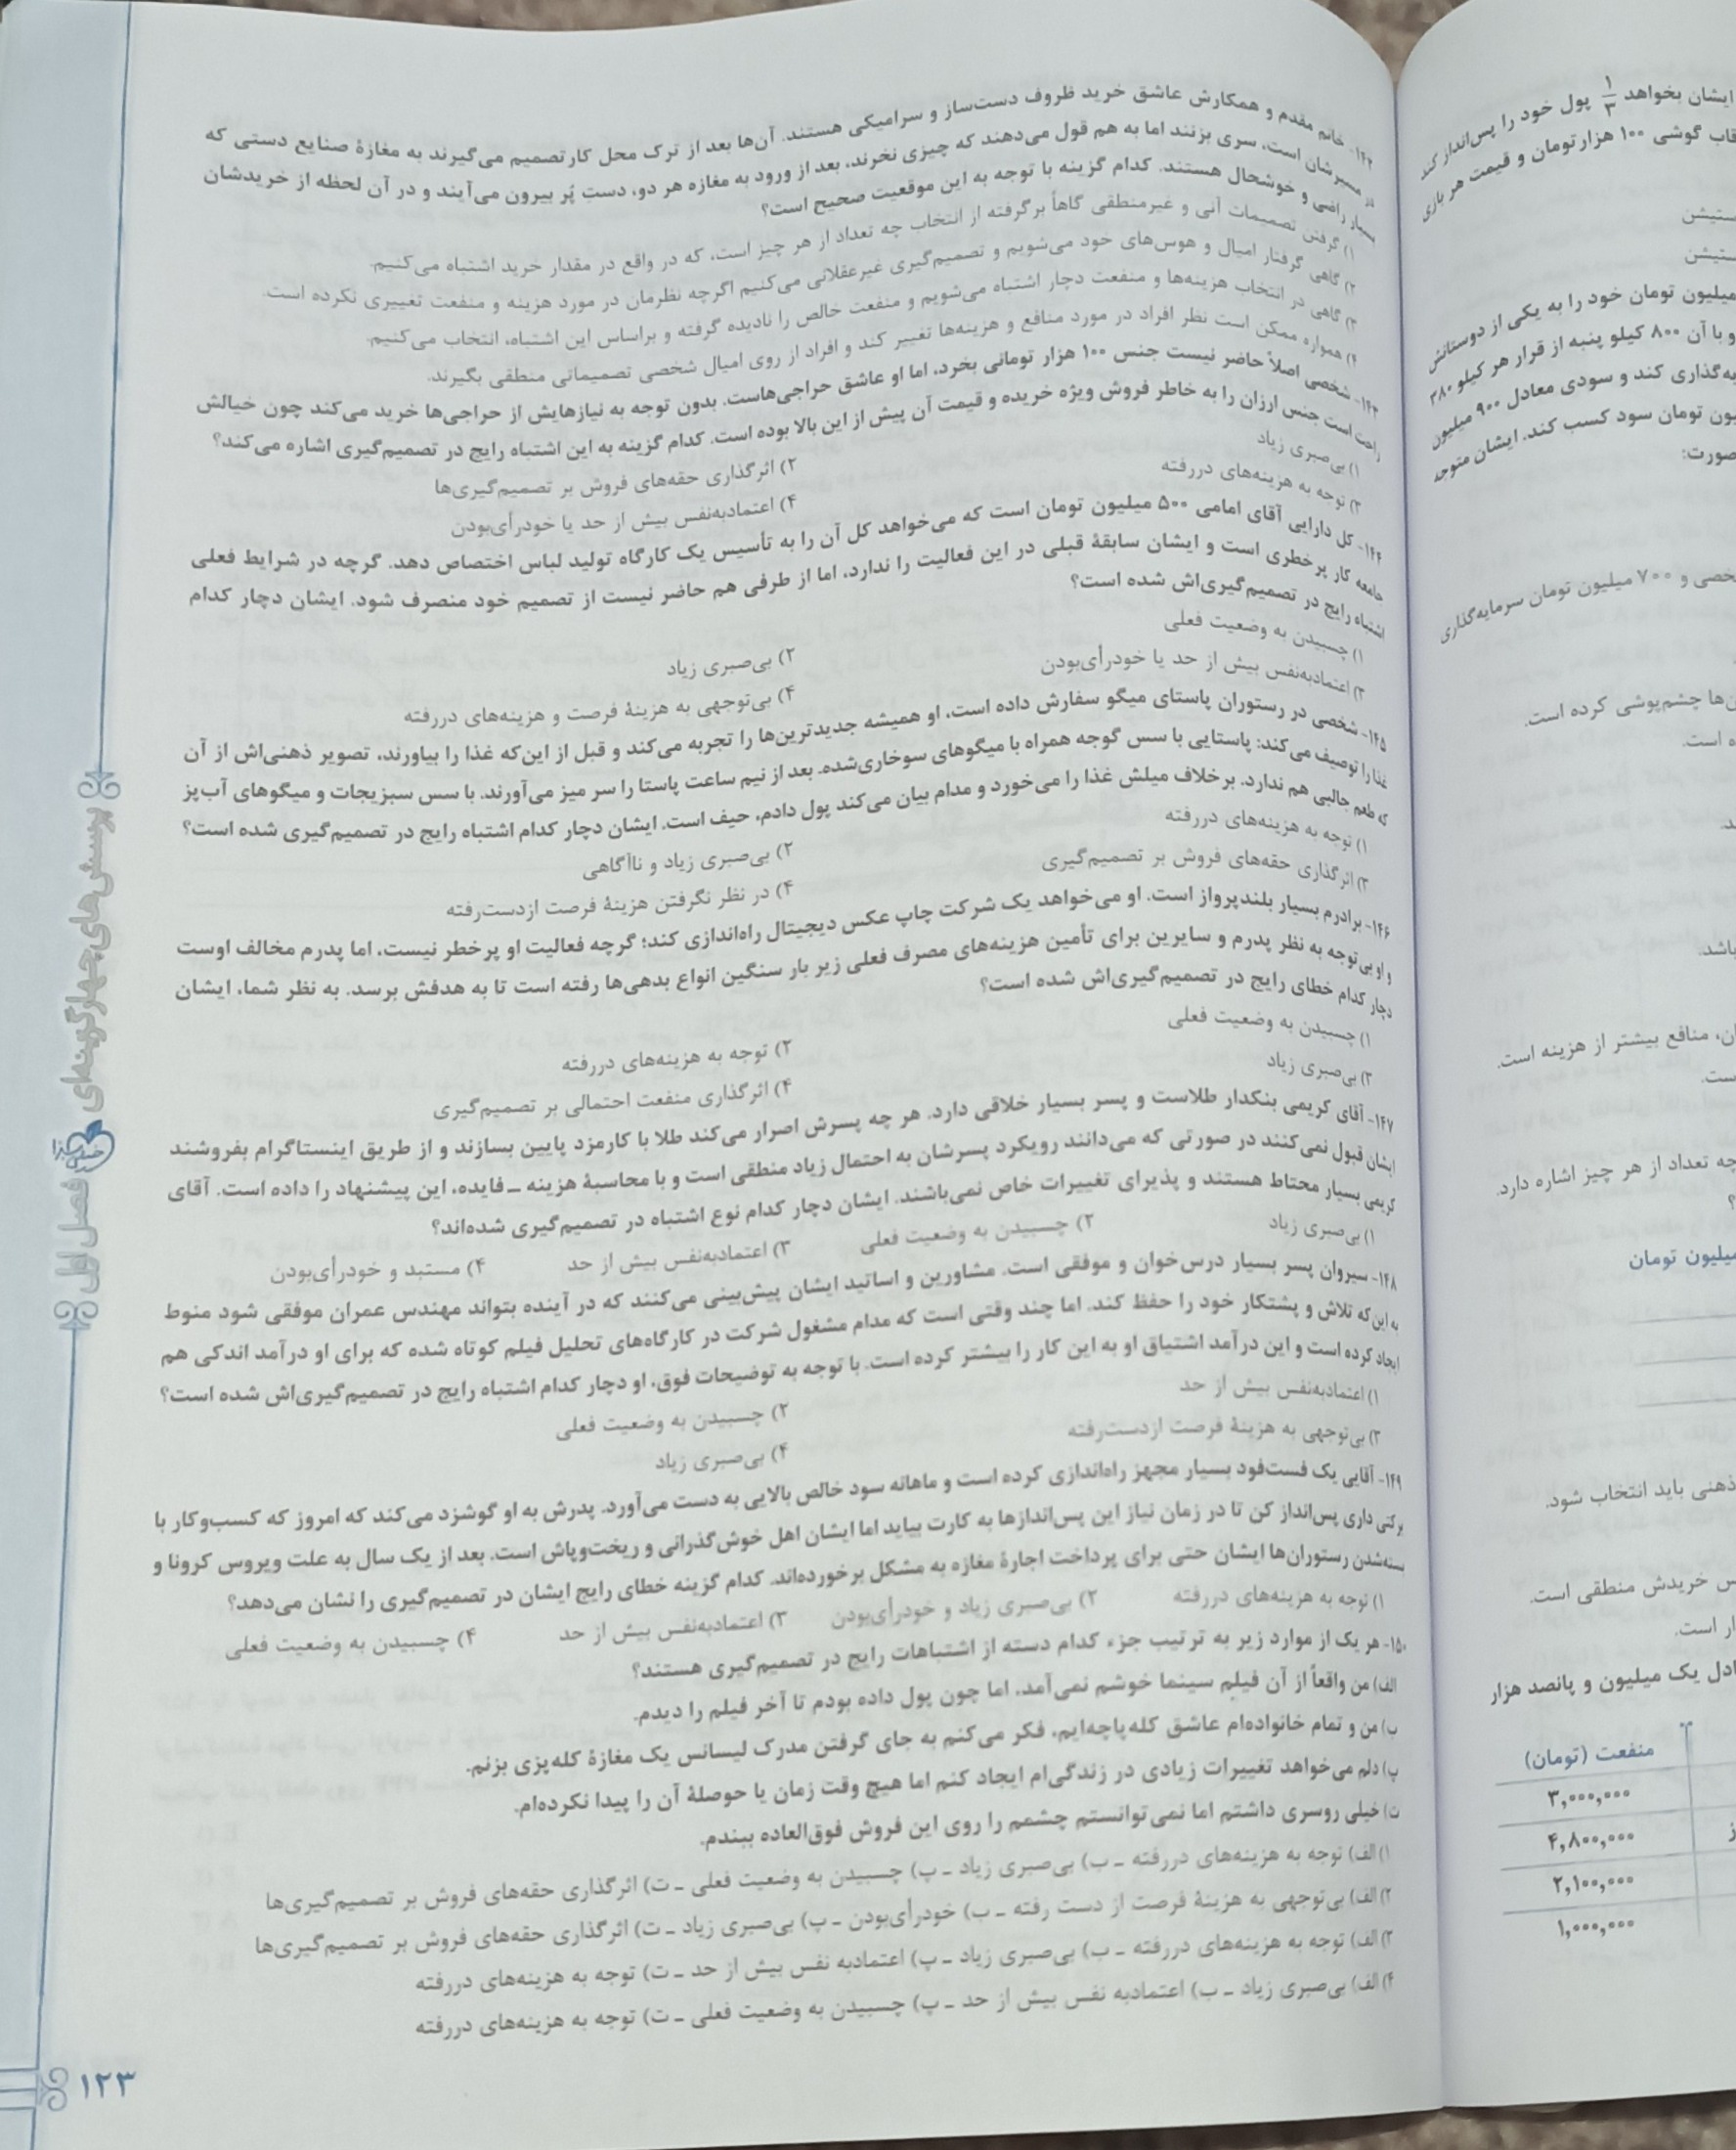 ۱۴۲- خانم مقدم و همکارش عاشق خرید ظروف دست‌ساز و سرامیکی هستند. آن‌ها بعد از ترک محل کار تصمیم می‌گیرند به مغازهٔ صنایع دستی که
در مسیرشان است، سری بزنند اما به هم قول می‌دهند که چیزی نخرند، بعد از ورود به مغازه هر دو، دست پُر بیرون می‌آیند و در آن لحظه از خریدشان
بسیار راضی و خوشحال هستند. کدام گزینه با توجه به این موقعیت صحیح است؟
۱) گرفتن تصمیمات آنی و غیرمنطقی گاهاً برگرفته از انتخاب چه تعداد از هر چیز است، که در واقع در مقدار خرید اشتباه می‌کنیم.
۲) گاهی گرفتار امیال و هوس‌های خود می‌شویم و تصمیم‌گیری غیرعقلانی می‌کنیم اگرچه نظرمان در مورد هزینه و منفعت تغییری نکرده است.
۳) گاهی در انتخاب هزینه‌ها و منفعت دچار اشتباه می‌شویم و منفعت خالص را نادیده گرفته و براساس این اشتباه، انتخاب می‌کنیم.
۴) همواره ممکن است نظر افراد در مورد منافع و هزینه‌ها تغییر کند و افراد از روی امیال شخصی تصمیماتی منطقی بگیرند.
۱۴۳- شخصی اصلاً حاضر نیست جنس ۱۰۰ هزار تومانی بخرد، اما او عاشق حراجی‌هاست. بدون توجه به نیازهایش از حراجی‌ها خرید می‌کند چون خیالش
راحت است جنس ارزان را به خاطر فروش ویژه خریده و قیمت آن پیش از این بالا بوده است. کدام گزینه به این اشتباه رایج در تصمیم‌گیری اشاره می‌کند؟
۱) بی‌صبری زیاد
۲) اثرگذاری حقه‌های فروش بر تصمیم‌گیری‌ها
۳) توجه به هزینه‌های دررفته
۴) اعتمادبه‌نفس بیش از حد یا خودرأی‌بودن
۱۴۴- کل دارایی آقای امامی ۵۰۰ میلیون تومان است که می‌خواهد کل آن را به تأسیس یک کارگاه تولید لباس اختصاص دهد. گرچه در شرایط فعلی
جامعه کار پرخطری است و ایشان سابقهٔ قبلی در این فعالیت را ندارد، اما از طرفی هم حاضر نیست از تصمیم خود منصرف شود. ایشان دچار کدام
اشتباه رایج در تصمیم‌گیری‌اش شده است؟
۱) چسبیدن به وضعیت فعلی
۲) بی‌صبری زیاد
۳) اعتمادبه‌نفس بیش از حد یا خودرأی‌بودن
۴) بی‌توجهی به هزینهٔ فرصت و هزینه‌های دررفته
۱۴۵- شخصی در رستوران پاستای میگو سفارش داده است، او همیشه جدیدترین‌ها را تجربه می‌کند و قبل از این‌که غذا را بیاورند، تصویر ذهنی‌اش از آن
غذا را توصیف می‌کند: پاستایی با سس گوجه همراه با میگوهای سوخاری‌شده. بعد از نیم ساعت پاستا را سر میز می‌آورند، با سس سبزیجات و میگوهای آب‌پز
که طعم جالبی هم ندارد. برخلاف میلش غذا را می‌خورد و مدام بیان می‌کند پول دادم، حیف است. ایشان دچار کدام اشتباه رایج در تصمیم‌گیری شده است؟
۱) توجه به هزینه‌های دررفته
۲) بی‌صبری زیاد و ناآگاهی
۳) اثرگذاری حقه‌های فروش بر تصمیم‌گیری
۴) در نظر نگرفتن هزینهٔ فرصت ازدست‌رفته
۱۴۶- برادرم بسیار بلندپرواز است. او می‌خواهد یک شرکت چاپ عکس دیجیتال راه‌اندازی کند؛ گرچه فعالیت او پرخطر نیست، اما پدرم مخالف اوست
و او بی‌توجه به نظر پدرم و سایرین برای تأمین هزینه‌های مصرف فعلی زیر بار سنگین انواع بدهی‌ها رفته است تا به هدفش برسد. به نظر شما، ایشان
دچار کدام خطای رایج در تصمیم‌گیری‌اش شده است؟
۱) چسبیدن به وضعیت فعلی
۲) توجه به هزینه‌های دررفته
۳) بی‌صبری زیاد
۴) اثرگذاری منفعت احتمالی بر تصمیم‌گیری
۱۴۷- آقای کریمی بنکدار طلاست و پسر بسیار خلاقی دارد. هر چه پسرش اصرار می‌کند طلا با کارمزد پایین بسازند و از طریق اینستاگرام بفروشند
ایشان قبول نمی‌کنند در صورتی که می‌دانند رویکرد پسرشان به احتمال زیاد منطقی است و با محاسبهٔ هزینه ـ فایده، این پیشنهاد را داده است. آقای
کریمی بسیار محتاط هستند و پذیرای تغییرات خاص نمی‌باشند. ایشان دچار کدام نوع اشتباه در تصمیم‌گیری شده‌اند؟
۱) بی‌صبری زیاد ۲) چسبیدن به وضعیت فعلی ۳) اعتمادبه‌نفس بیش از حد ۴) مستبد و خودرأی‌بودن
۱۴۸- سیروان پسر بسیار درس‌خوان و موفقی است. مشاورین و اساتید ایشان پیش‌بینی می‌کنند که در آینده بتواند مهندس عمران موفقی شود منوط
به این‌که تلاش و پشتکار خود را حفظ کند. اما چند وقتی است که مدام مشغول شرکت در کارگاه‌های تحلیل فیلم کوتاه شده که برای او درآمد اندکی هم
ایجاد کرده است و این درآمد اشتیاق او به این کار را بیشتر کرده است. با توجه به توضیحات فوق، او دچار کدام اشتباه رایج در تصمیم‌گیری‌اش شده است؟
۱) اعتمادبه‌نفس بیش از حد
۲) چسبیدن به وضعیت فعلی
۳) بی‌توجهی به هزینهٔ فرصت ازدست‌رفته
۴) بی‌صبری زیاد
۱۴۹- آقایی یک فست‌فود بسیار مجهز راه‌اندازی کرده است و ماهانه سود خالص بالایی به دست می‌آورد. پدرش به او گوشزد می‌کند که امروز که کسب‌وکار با
برکتی داری پس‌انداز کن تا در زمان نیاز این پس‌اندازها به کارت بیاید اما ایشان اهل خوش‌گذرانی و ریخت‌وپاش است. بعد از یک سال به علت ویروس کرونا و
بسته‌شدن رستوران‌ها ایشان حتی برای پرداخت اجارهٔ مغازه به مشکل برخورده‌اند. کدام گزینه خطای رایج ایشان در تصمیم‌گیری را نشان می‌دهد؟
۱) توجه به هزینه‌های دررفته ۲) بی‌صبری زیاد و خودرأی‌بودن ۳) اعتمادبه‌نفس بیش از حد ۴) چسبیدن به وضعیت فعلی
۱۵۰- هر یک از موارد زیر به ترتیب جزء کدام دسته از اشتباهات رایج در تصمیم‌گیری هستند؟
الف) من واقعاً از آن فیلم سینما خوشم نمی‌آمد، اما چون پول داده بودم تا آخر فیلم را دیدم.
ب) من و تمام خانواده‌ام عاشق کله‌پاچه‌ایم، فکر می‌کنم به جای گرفتن مدرک لیسانس یک مغازهٔ کله‌پزی بزنم.
پ) دلم می‌خواهد تغییرات زیادی در زندگی‌ام ایجاد کنم اما هیچ وقت زمان یا حوصلهٔ آن را پیدا نکرده‌ام.
ت) خیلی روسری داشتم اما نمی‌توانستم چشمم را روی این فروش فوق‌العاده ببندم.
۱) الف) توجه به هزینه‌های دررفته ـ ب) بی‌صبری زیاد ـ پ) چسبیدن به وضعیت فعلی ـ ت) اثرگذاری حقه‌های فروش بر تصمیم‌گیری‌ها
۲) الف) بی‌توجهی به هزینهٔ فرصت از دست رفته ـ ب) خودرأی‌بودن ـ پ) بی‌صبری زیاد ـ ت) اثرگذاری حقه‌های فروش بر تصمیم‌گیری‌ها
۳) الف) توجه به هزینه‌های دررفته ـ ب) بی‌صبری زیاد ـ پ) اعتمادبه نفس بیش از حد ـ ت) توجه به هزینه‌های دررفته
۴) الف) بی‌صبری زیاد ـ ب) اعتمادبه نفس بیش از حد ـ پ) چسبیدن به وضعیت فعلی ـ ت) توجه به هزینه‌های دررفته
پرسش‌های چهارگزینه‌ای
فصل اول
۱۲۳
ایشان بخواهد ۱/۳ پول خود را پس‌انداز کند
قاب گوشی ۱۰۰ هزار تومان و قیمت هر بازی
میلیون تومان خود را به یکی از دوستانش
و با آن ۸۰۰ کیلو پنبه از قرار هر کیلو ۲۸۰
به‌گذاری کند و سودی معادل ۹۰۰ میلیون
تومان سود کسب کند. ایشان متوجه
صورت:
و ۷۰۰ میلیون تومان سرمایه‌گذاری
چشم‌پوشی کرده است.
است.
باشد.
منافع بیشتر از هزینه است.
است.
چه تعداد از هر چیز اشاره دارد.
میلیون تومان
ذهنی باید انتخاب شود.
خریدش منطقی است.
است.
یک میلیون و پانصد هزار
منفعت (تومان)
۳,۰۰۰,۰۰۰
۴,۸۰۰,۰۰۰
۲,۱۰۰,۰۰۰
۱,۰۰۰,۰۰۰